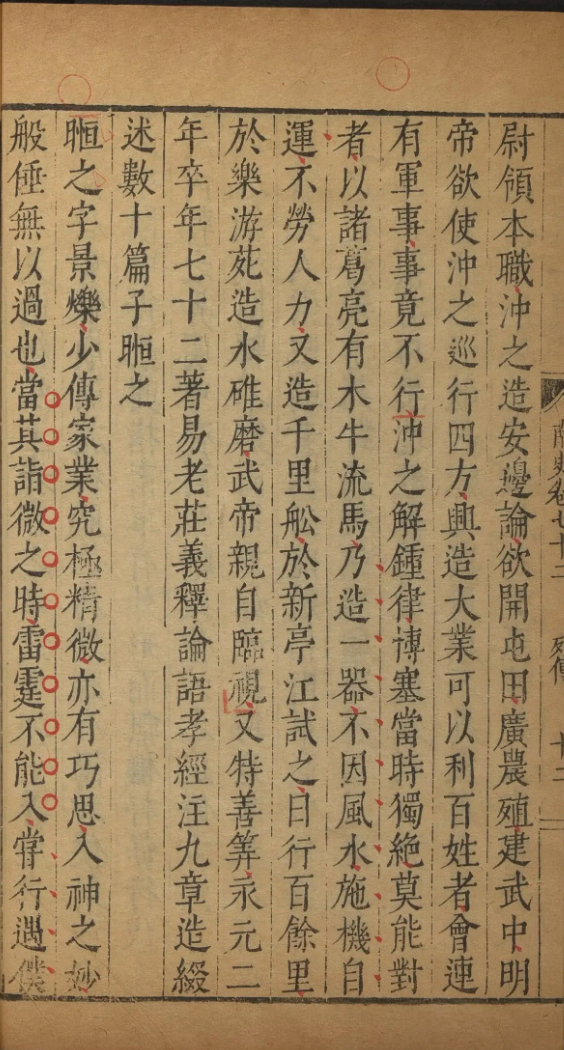 尉領本職沖之造安邊論欲開屯田廣農殖建武中明
帝欲使沖之巡行四方興造大業可以利百姓者會連
有軍事事竟不行沖之解鍾律博塞當時獨絶莫能對
者以諸葛亮有木牛流馬乃造一器不因風水施機自
運不勞人力又造千里船於新亭江試之日行百餘里
於樂游苑造水碓磨武帝親自臨視又特善筭永元二
年卒年七十二著易老莊義釋論語孝經注九章造綴
述數十篇子暅之
暅之字景爍少傳家業究極精微亦有巧思入神之妙
般倕無以過也當其詣微之時雷霆不能入甞行遇僕
南史卷七十二 列傳 十二